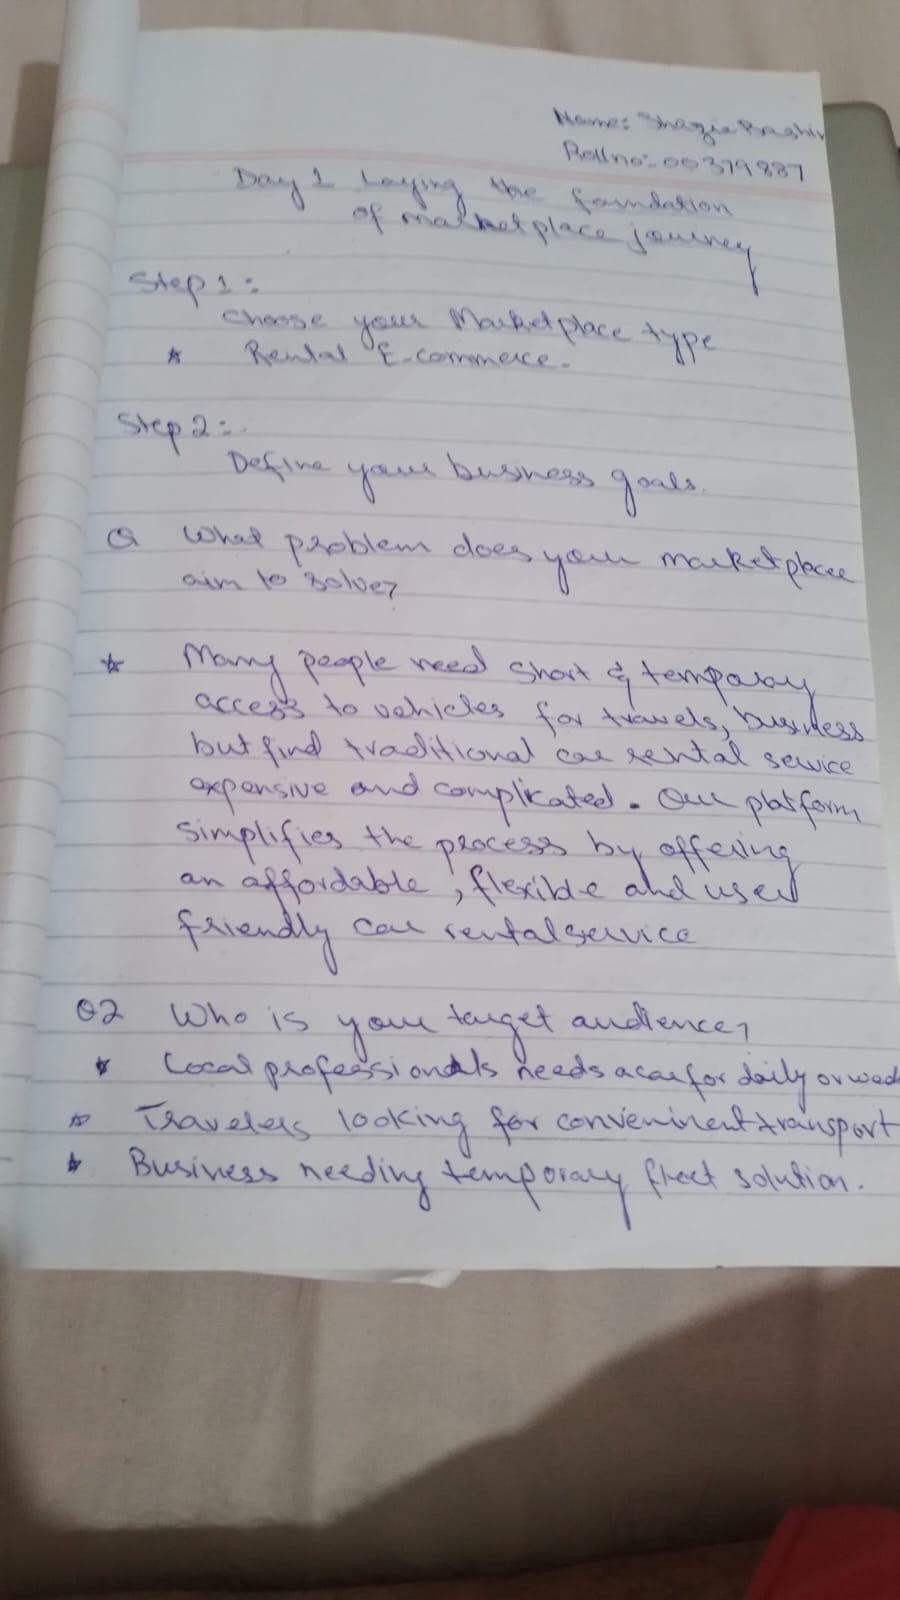 Name: Shazia Bashir
Roll no:- 00379887
Day 1 Laying the foundation
of marketplace journey
Step 1:
choose your Marketplace type
* Rental E-commerce.
Step 2:-
Define your business goals.
Q What problem does your marketplace
aim to solve?
* Many people need short & temporary
access to vehicles for travels, business
but find traditional car rental service
expensive and complicated. Our platform
simplifies the process by offering
an affordable, flexible and user
friendly car rental service
Q2 Who is your target audience?
* Local professionals needs a car for daily or
* Travelers looking for conveninent transport
* Business needing temporary fleet solution.